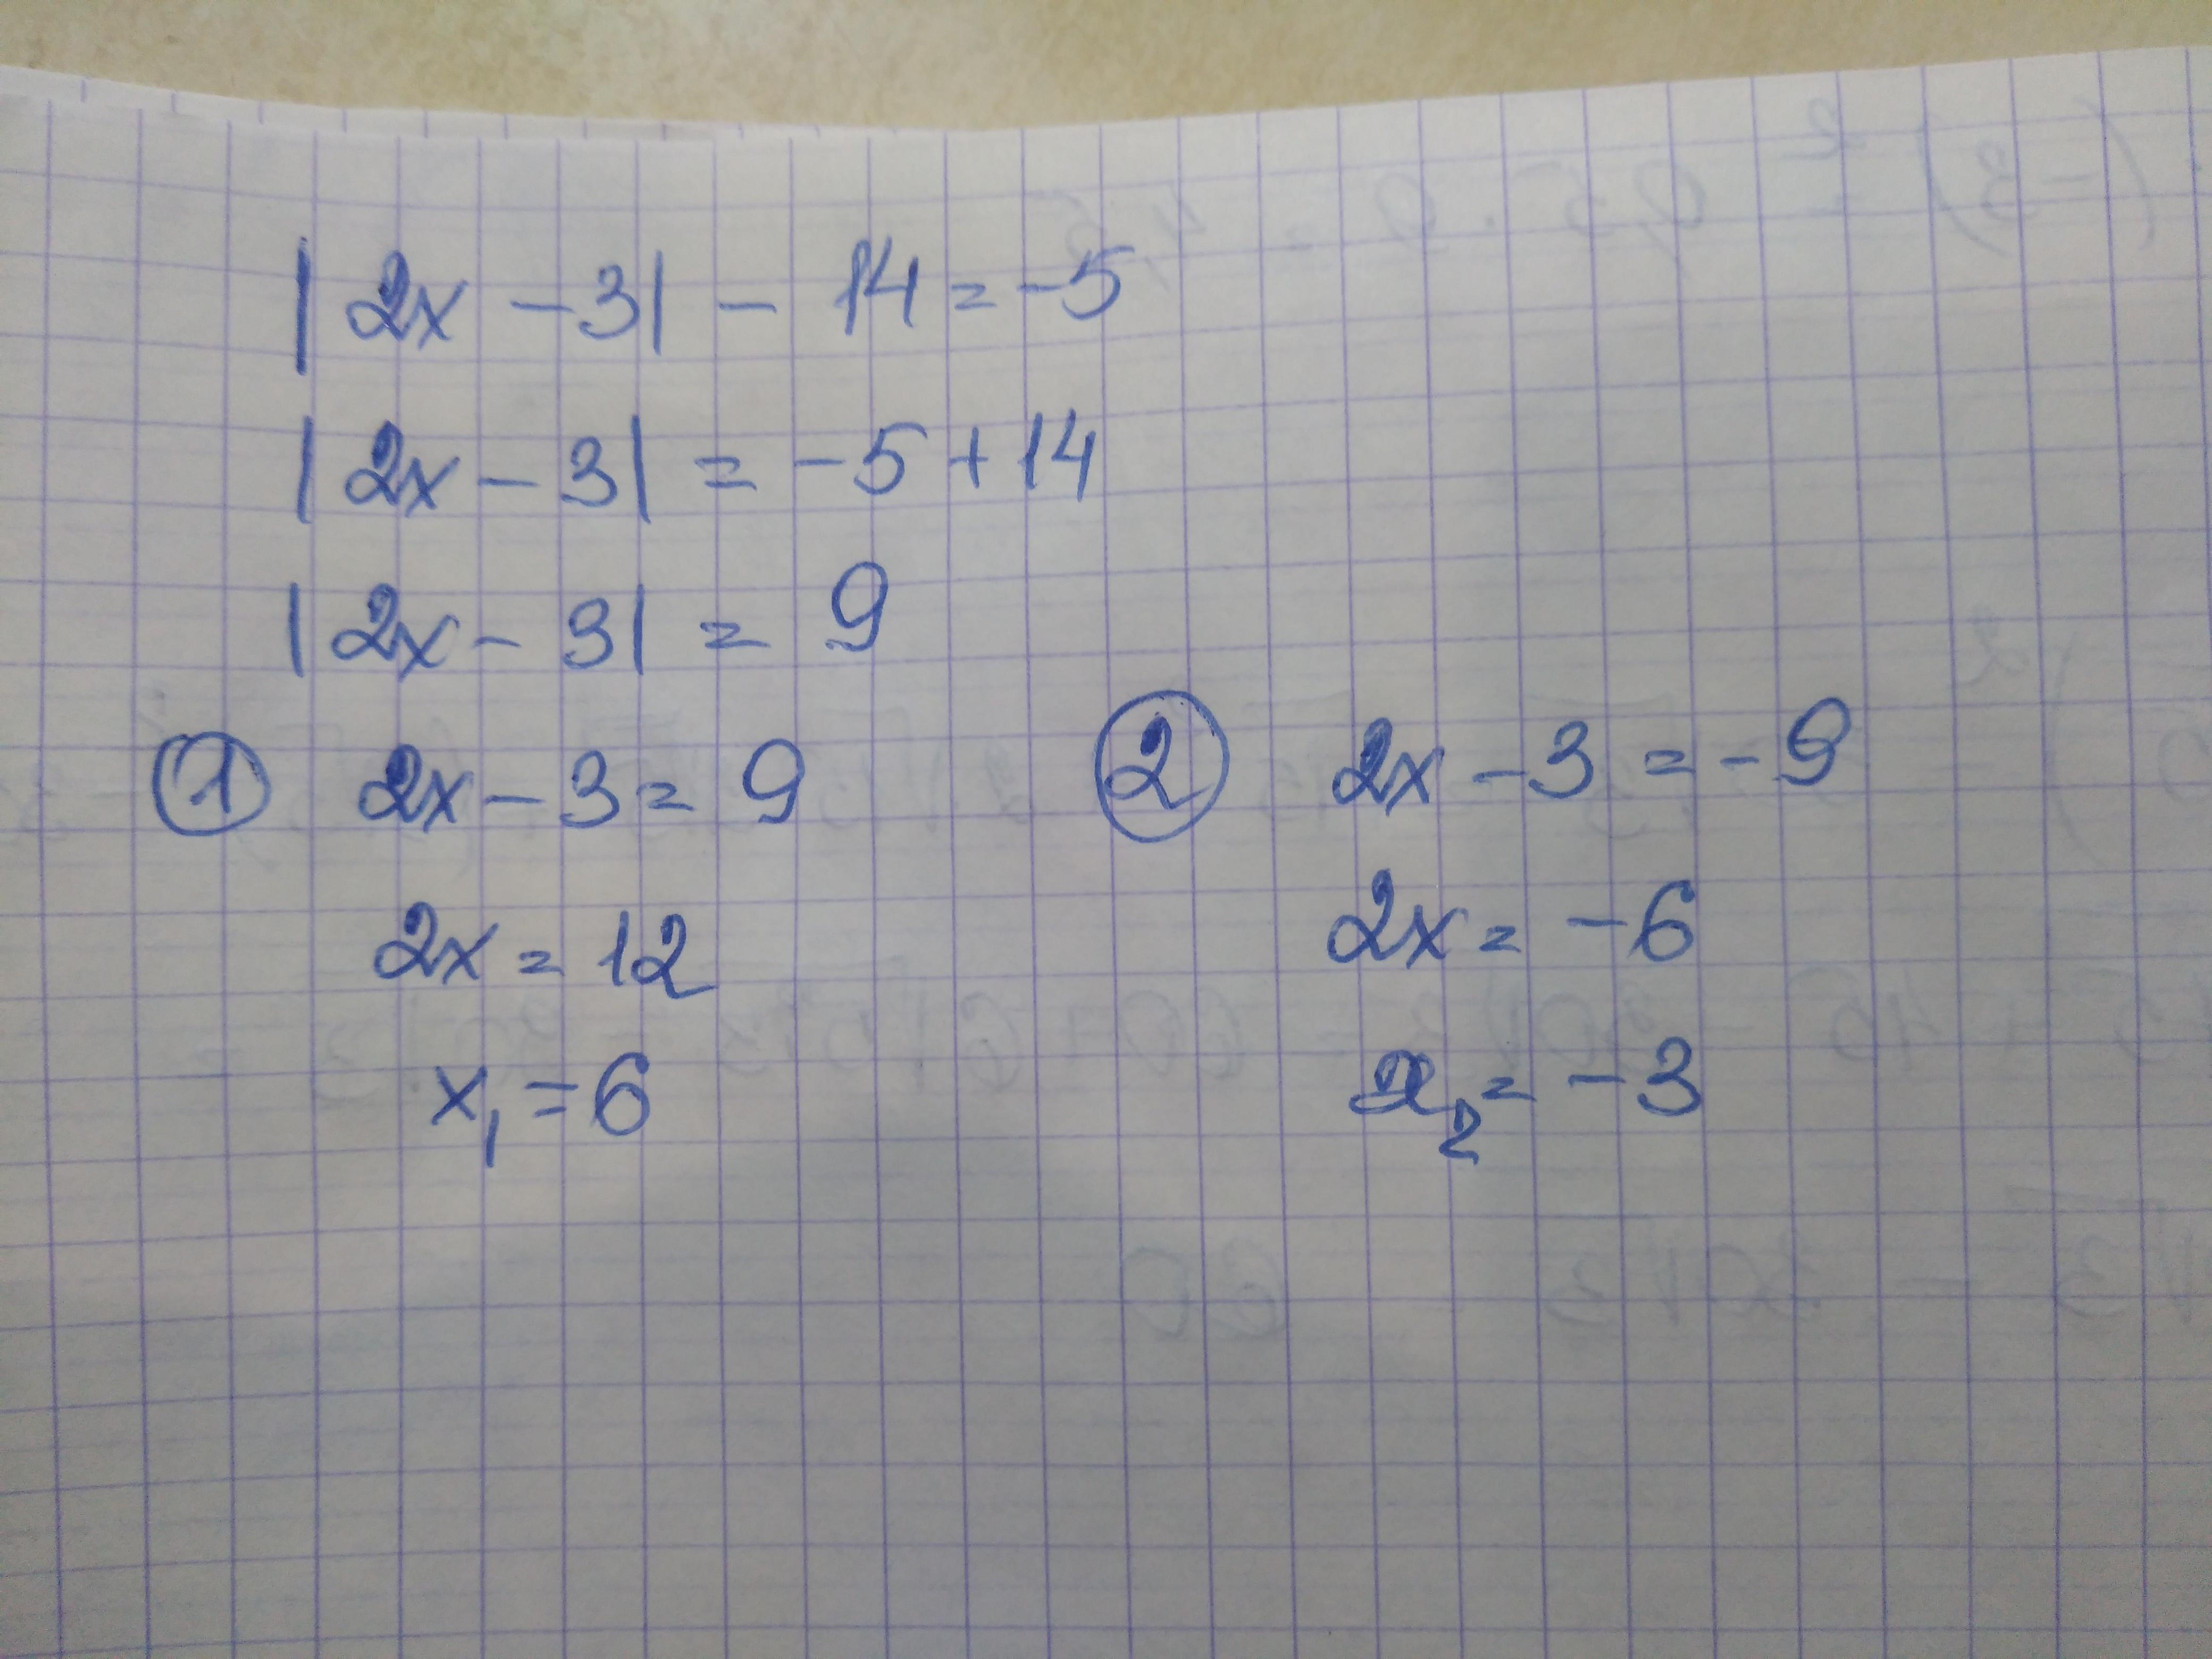 |2x - 3| - 14 = -5
|2x - 3| = -5 + 14
|2x - 3| = 9
① 2x - 3 = 9
2x = 12
x₁ = 6
② 2x - 3 = -9
2x = -6
x₂ = -3